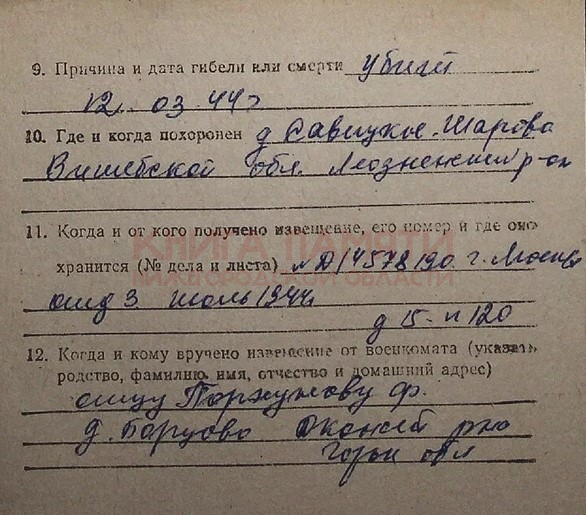 9. Причина и дата гибели или смерти убит
12. 03. 44 г
10. Где и когда похоронен д Савицкое-Шарова
Витебской обл. Лиозненский р-он
11. Когда и от кого получено извещение, его номер и где оно
КНИГА ПАМЯТИ
хранится (№ дела и листа) г. Москва
НИЖЕГОРОДСКОЙ ОБЛАСТИ
от 3 июль 1944г
д 15-п 120
12. Когда и кому вручено извещение от военкомата (указать
родство, фамилию, имя, отчество и домашний адрес)
отцу ф.
д. р-на
Горьк обл